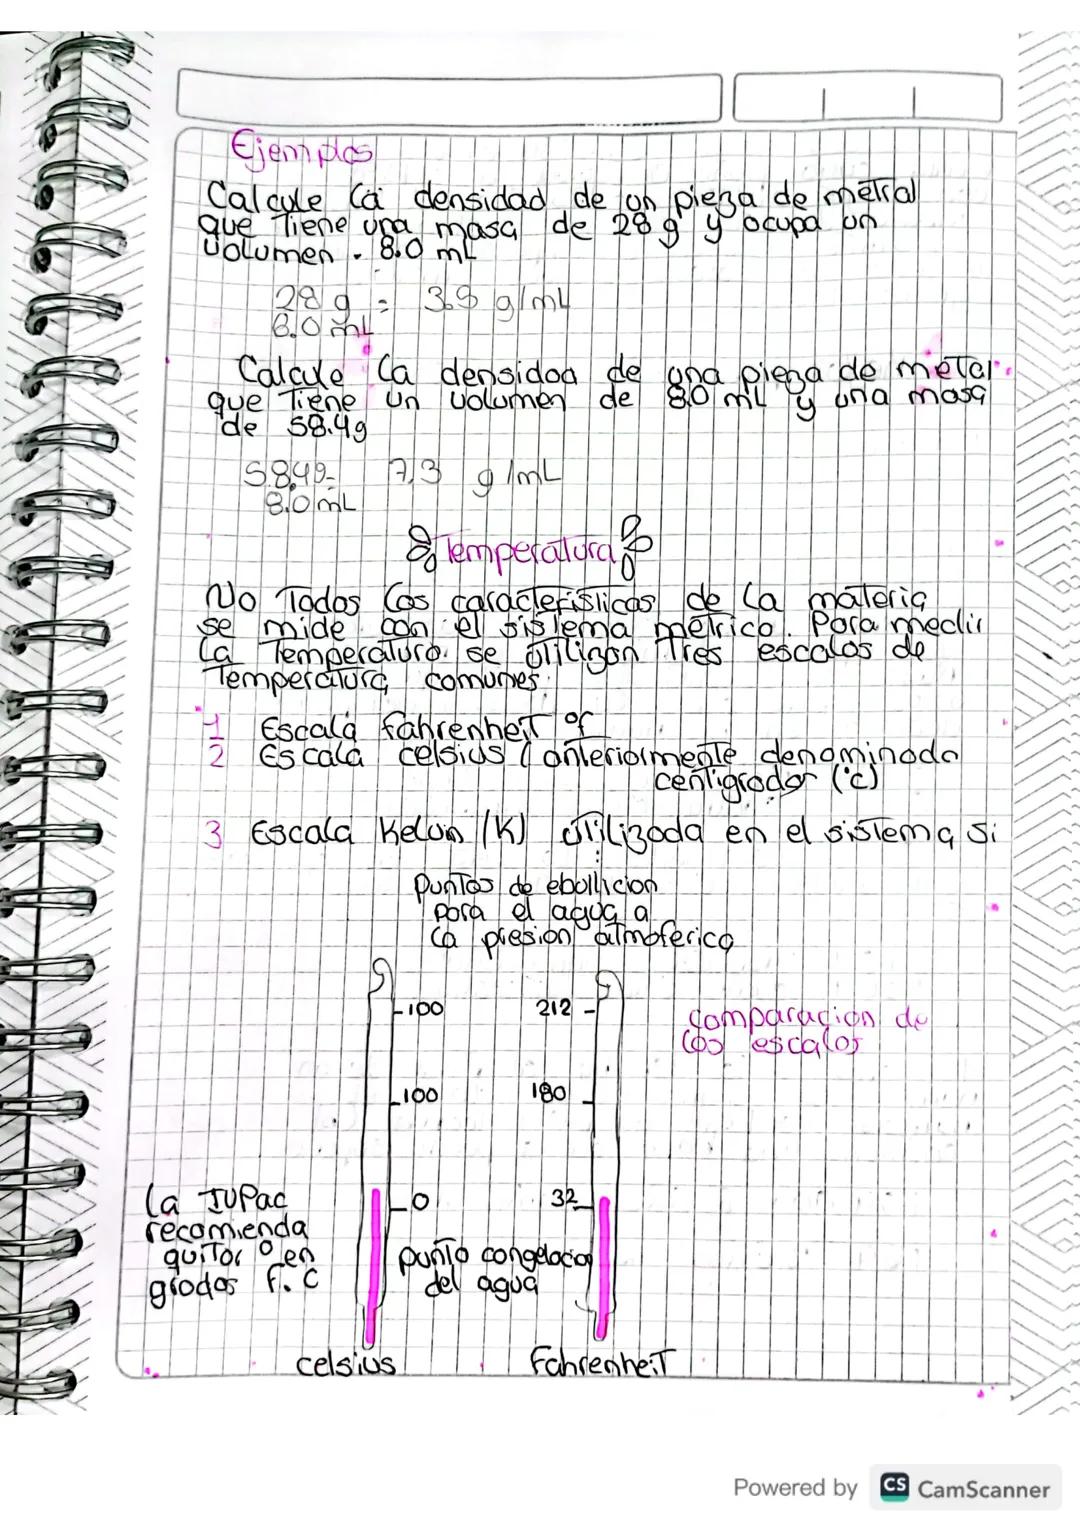 Ejemplos
Calcule la densidad de un pieza de metal
que Tiene una masa de 28 g y ocupa un
Volumen . 8.0 mL
28 g = 3.5 g/mL
8.0 mL
Calcule la densidad de una pieza de metal
que Tiene un volumen de 8.0 mL y una masa
de 58.4g
58.4g= 7.3 g/mL
8.0 mL
Temperatura
No Todas las características de la materia
se mide con el sistema métrico. Para medir
la Temperatura. se utilizan Tres escalas de
Temperatura comunes.
1 Escala fahrenheiT °f
2 Escala celsius (anteriormente denominada
centigrador (°c)
3 Escala Kelvin (K) utilizada en el sistema Si
punTos de ebollicion
para el agua a
la presion atmoferica
100
212
comparacion de
las escalas
100
180
0
32
la IUPac
recomienda
quitar ° en
grados f. C
punto congelacion
del agua
celsius
FahrenheiT
Powered by CS CamScanner